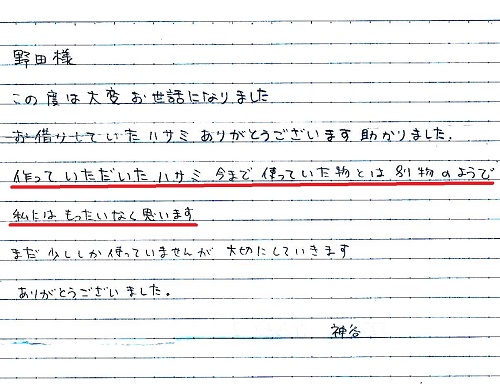 野田様
この度は大変お世話になりました
お借りしていたハサミありがとうございます助かりました.
作っていただいたハサミ今まで使っていた物とは別物のようで
私にはもったいなく思います
まだ少ししか使っていませんが大切にしていきます
ありがとうございました。
神谷